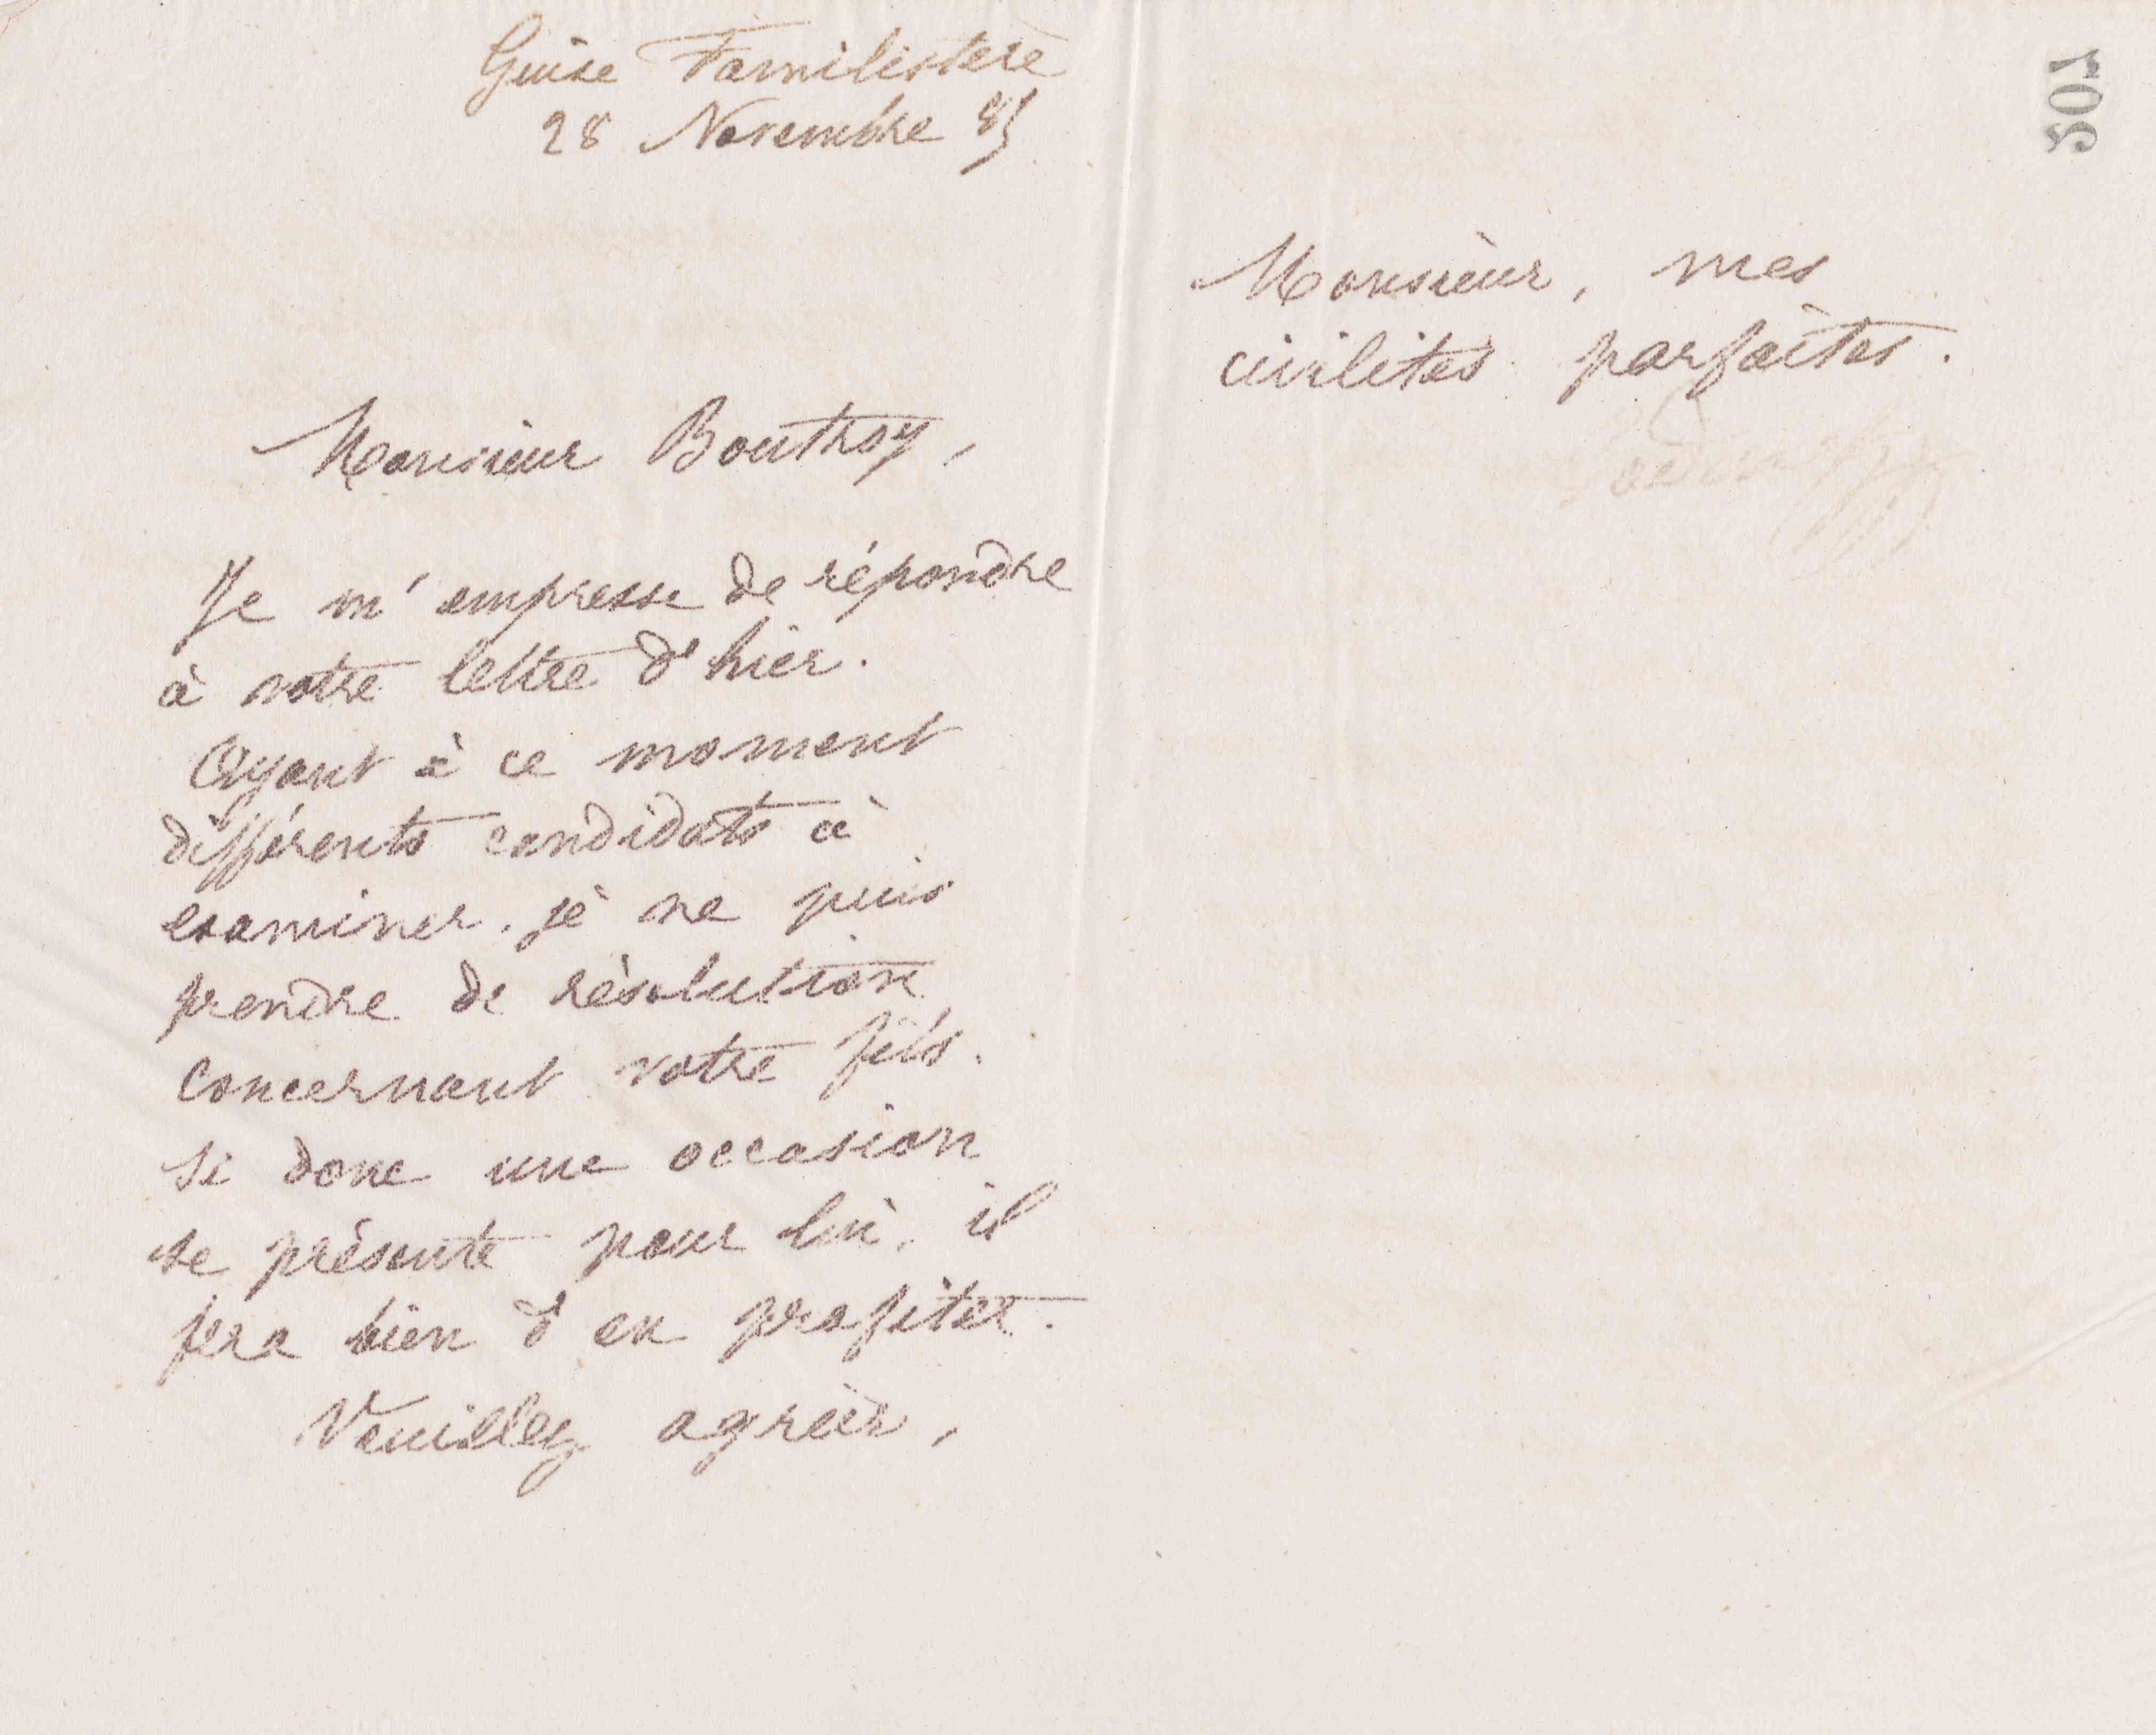 Guise Familistère
28 Novembre 85
Monsieur Boutroy,
Je m'empresse de répondre
à votre lettre d'hier.
Ayant à ce moment
différents candidats à
examiner, je ne puis
prendre de résolution
concernant votre fils.
Si donc une occasion
se présente pour lui, il
fera bien d'en profiter.
Veuillez agréer,
Monsieur, mes
civilités parfaites.
Godin